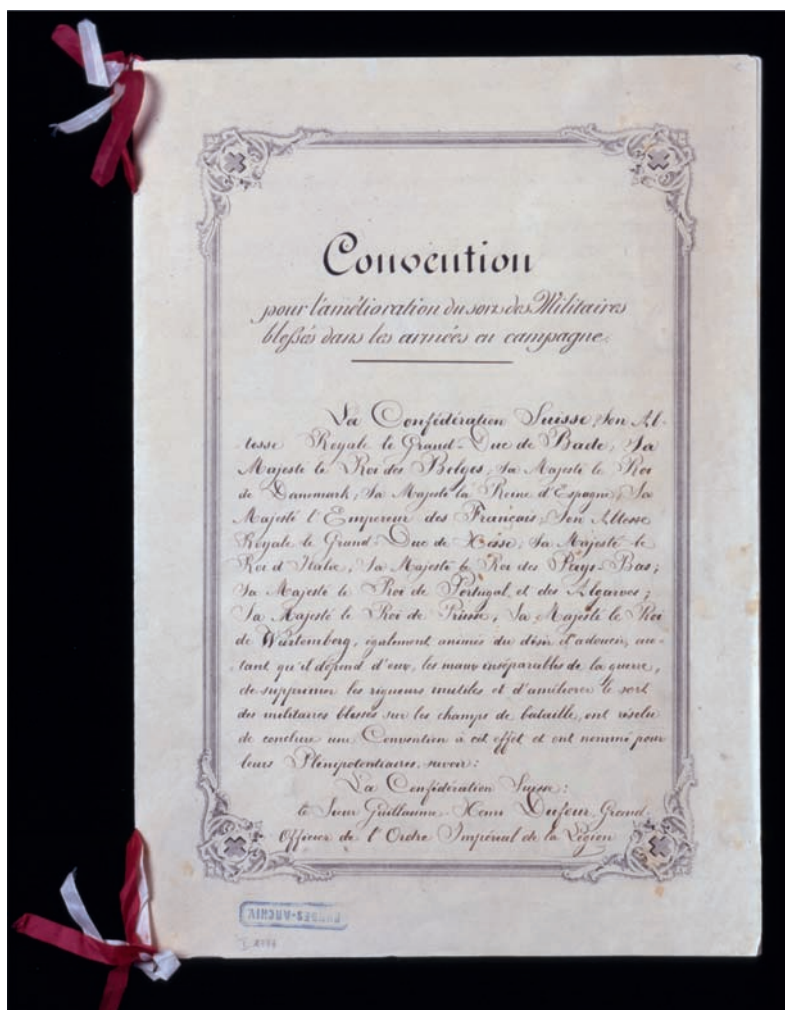 Convention
pour l'amélioration du sort des Militaires
blessés dans les armées en campagne.
La Confédération Suisse; Son Al-
-tesse Royale le Grand-Duc de Bade; Sa
Majesté le Roi des Belges; Sa Majesté le Roi
de Danemark; Sa Majesté la Reine d'Espagne; Sa
Majesté l'Empereur des Français; Son Altesse
Royale le Grand-Duc de Hesse; Sa Majesté le
Roi d'Italie; Sa Majesté le Roi des Pays-Bas;
Sa Majesté le Roi de Portugal et des Algarves;
Sa Majesté le Roi de Prusse; Sa Majesté le Roi
de Würtemberg, également animés du désir d'adoucir, au-
-tant qu'il dépend d'eux, les maux inséparables de la guerre,
de supprimer les rigueurs inutiles et d'améliorer le sort
des militaires blessés sur les champs de bataille, ont résolu
de conclure une Convention à cet effet et ont nommé pour
leurs Plénipotentiaires, savoir:
La Confédération Suisse:
le Sieur Guillaume-Henri Dufour, Grand
Officier de l'Ordre Impérial de la Légion
BUNDES-ARCHIV